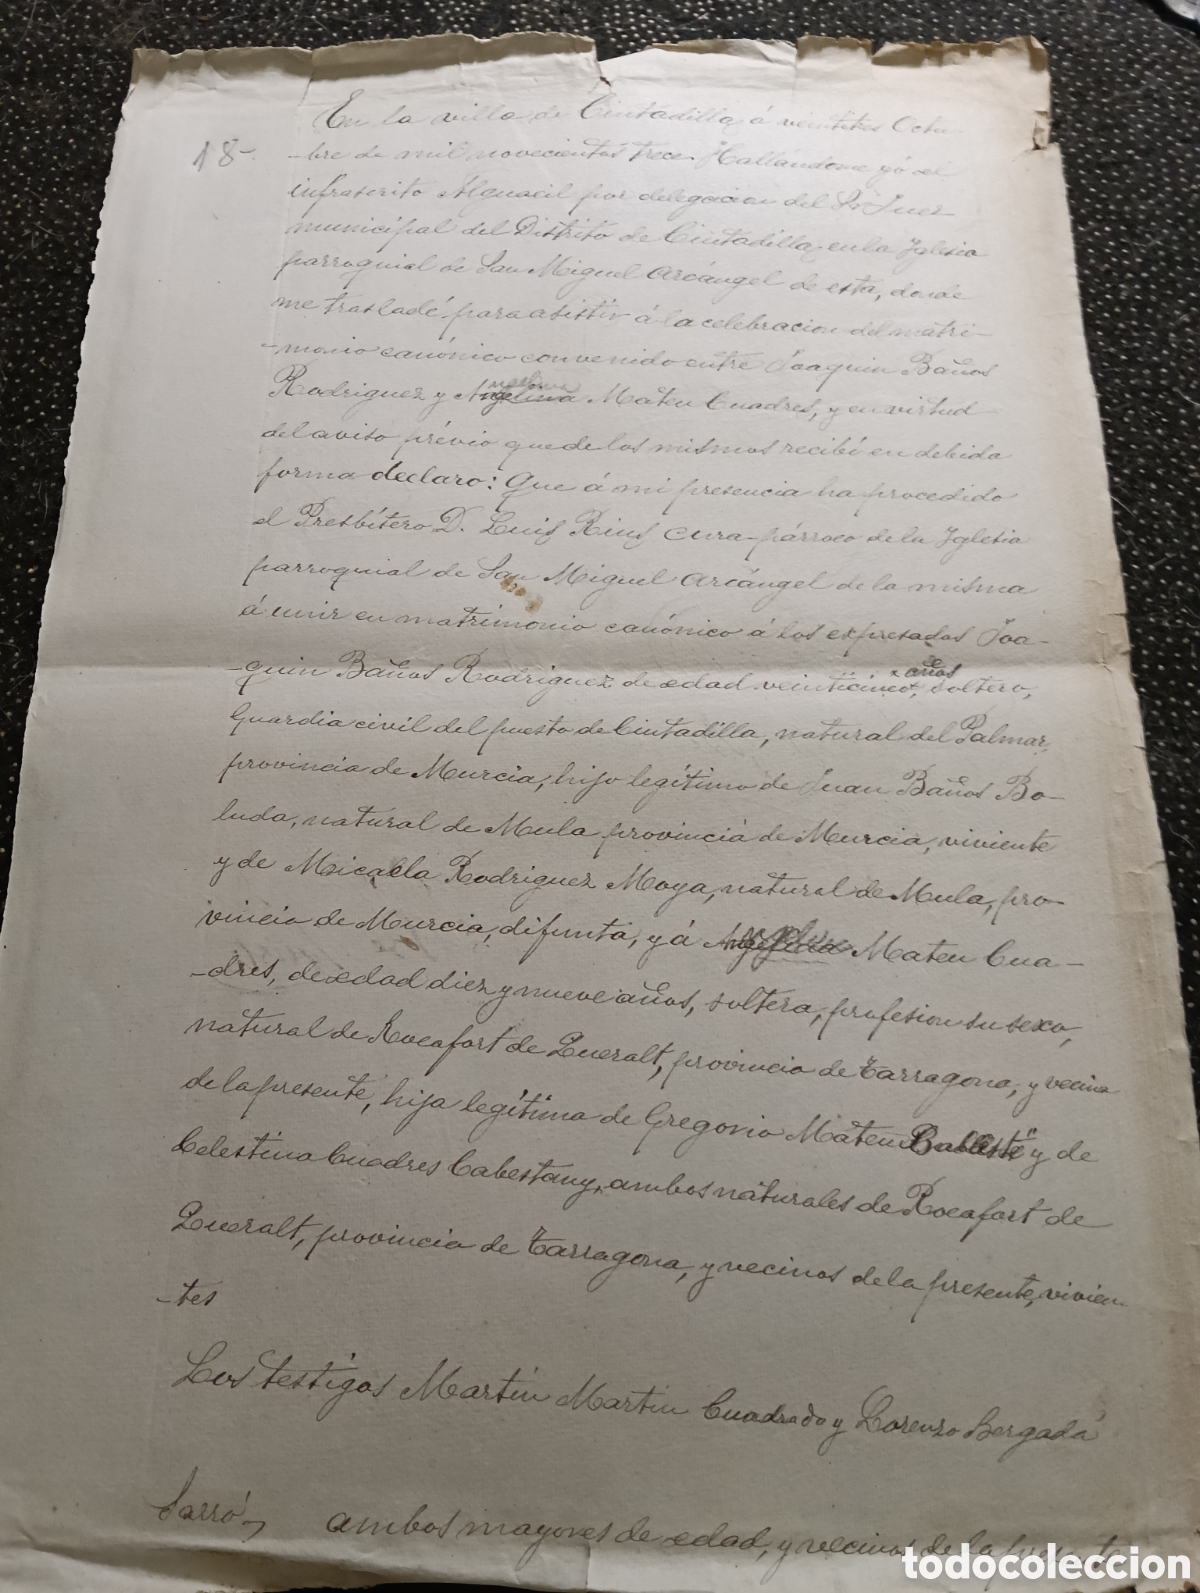 18-
En la villa de Ciutadilla á veintitres Octu-
-bre de mil novecientos trece. Hallándome yó el
infrascrito Alguacil por delegacion del Sr Juez
municipal del Distrito de Ciutadilla, en la Iglesia
parroquial de San Miguel Arcángel de esta, donde
me trasladé para asistir á la celebracion del matri-
-monio canónico convenido entre Joaquin Baños
Rodriguez y Angelina Mateu Cuadres, y en virtud
del aviso prévio que de los mismos recibí en debida
forma declaro: Que á mi presencia ha procedido
el Presbítero D. Luis Rius cura-párroco de la Iglesia
parroquial de San Miguel Arcángel de la misma
á unir en matrimonio canónico á los expresados Joa-
-quin Baños Rodriguez de edad veinticinco años, soltero,
Guardia civil del puesto de Ciutadilla, natural del Palmar,
provincia de Murcia, hijo legítimo de Juan Baños Bo-
luda, natural de Mula provincia de Murcia, viviente
y de Micaela Rodriguez Moya, natural de Mula, pro-
vincia de Murcia, difunta, y á Mateu Cua-
-dres, de edad diez y nueve años, soltera, profesion su sexo,
natural de Rocafort de Queralt, provincia de Tarragona, y vecina
de la presente, hija legítima de Gregorio Mateu Ballesté y de
Celestina Cuadres Cabestany, ambos naturales de Rocafort de
Queralt, provincia de Tarragona, y vecinos de la presente, vivien-
-tes
Los testigos Martin Martin Cuadrado y Lorenzo Bergadá
Sarró, ambos mayores de edad, y vecinos de la presente
todocoleccion